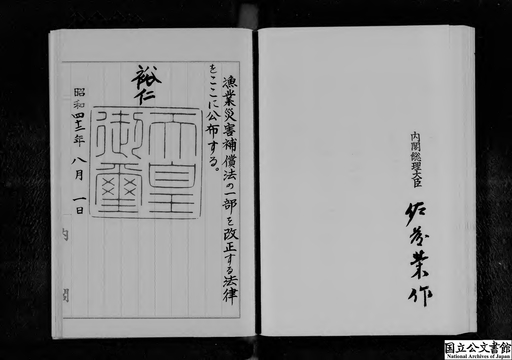 内閣総理大臣
佐藤栄作
漁業災害補償法の一部を改正する法律
をここに公布する。
裕仁
天皇
御璽
昭和四十二年八月一日
内閣
国立公文書館
National Archives of Japan